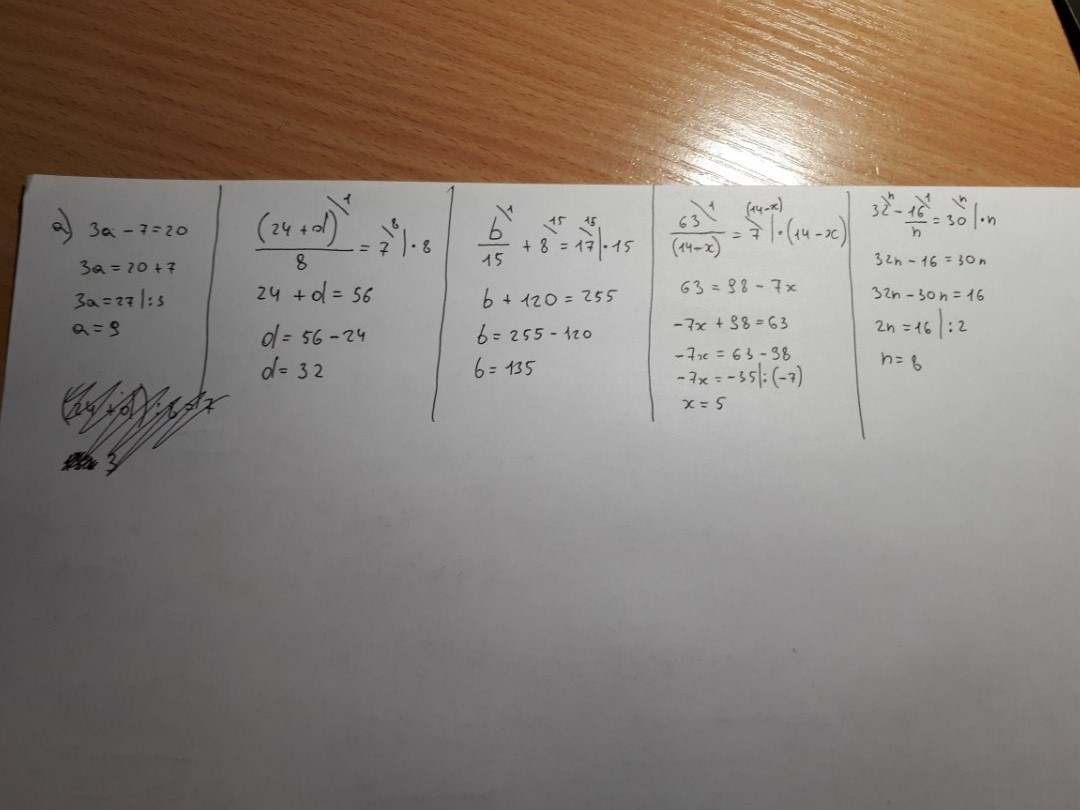 a) 3a - 7 = 20
3a = 20 + 7
3a = 27 | : 3
a = 9
(24 + d) \1
/ 8 = 7 \8 | · 8
24 + d = 56
d = 56 - 24
d = 32
b \1
/ 15 + 8 \15 = 17 \15 | · 15
b + 120 = 255
b = 255 - 120
b = 135
63 \1
/ (14-x) = 7 \(14-x) | · (14-x)
63 = 98 - 7x
-7x + 98 = 63
-7x = 63 - 98
-7x = -35 | : (-7)
x = 5
32 \n - 16 \1
/ n = 30 \n | · n
32n - 16 = 30n
32n - 30n = 16
2n = 16 | : 2
n = 8